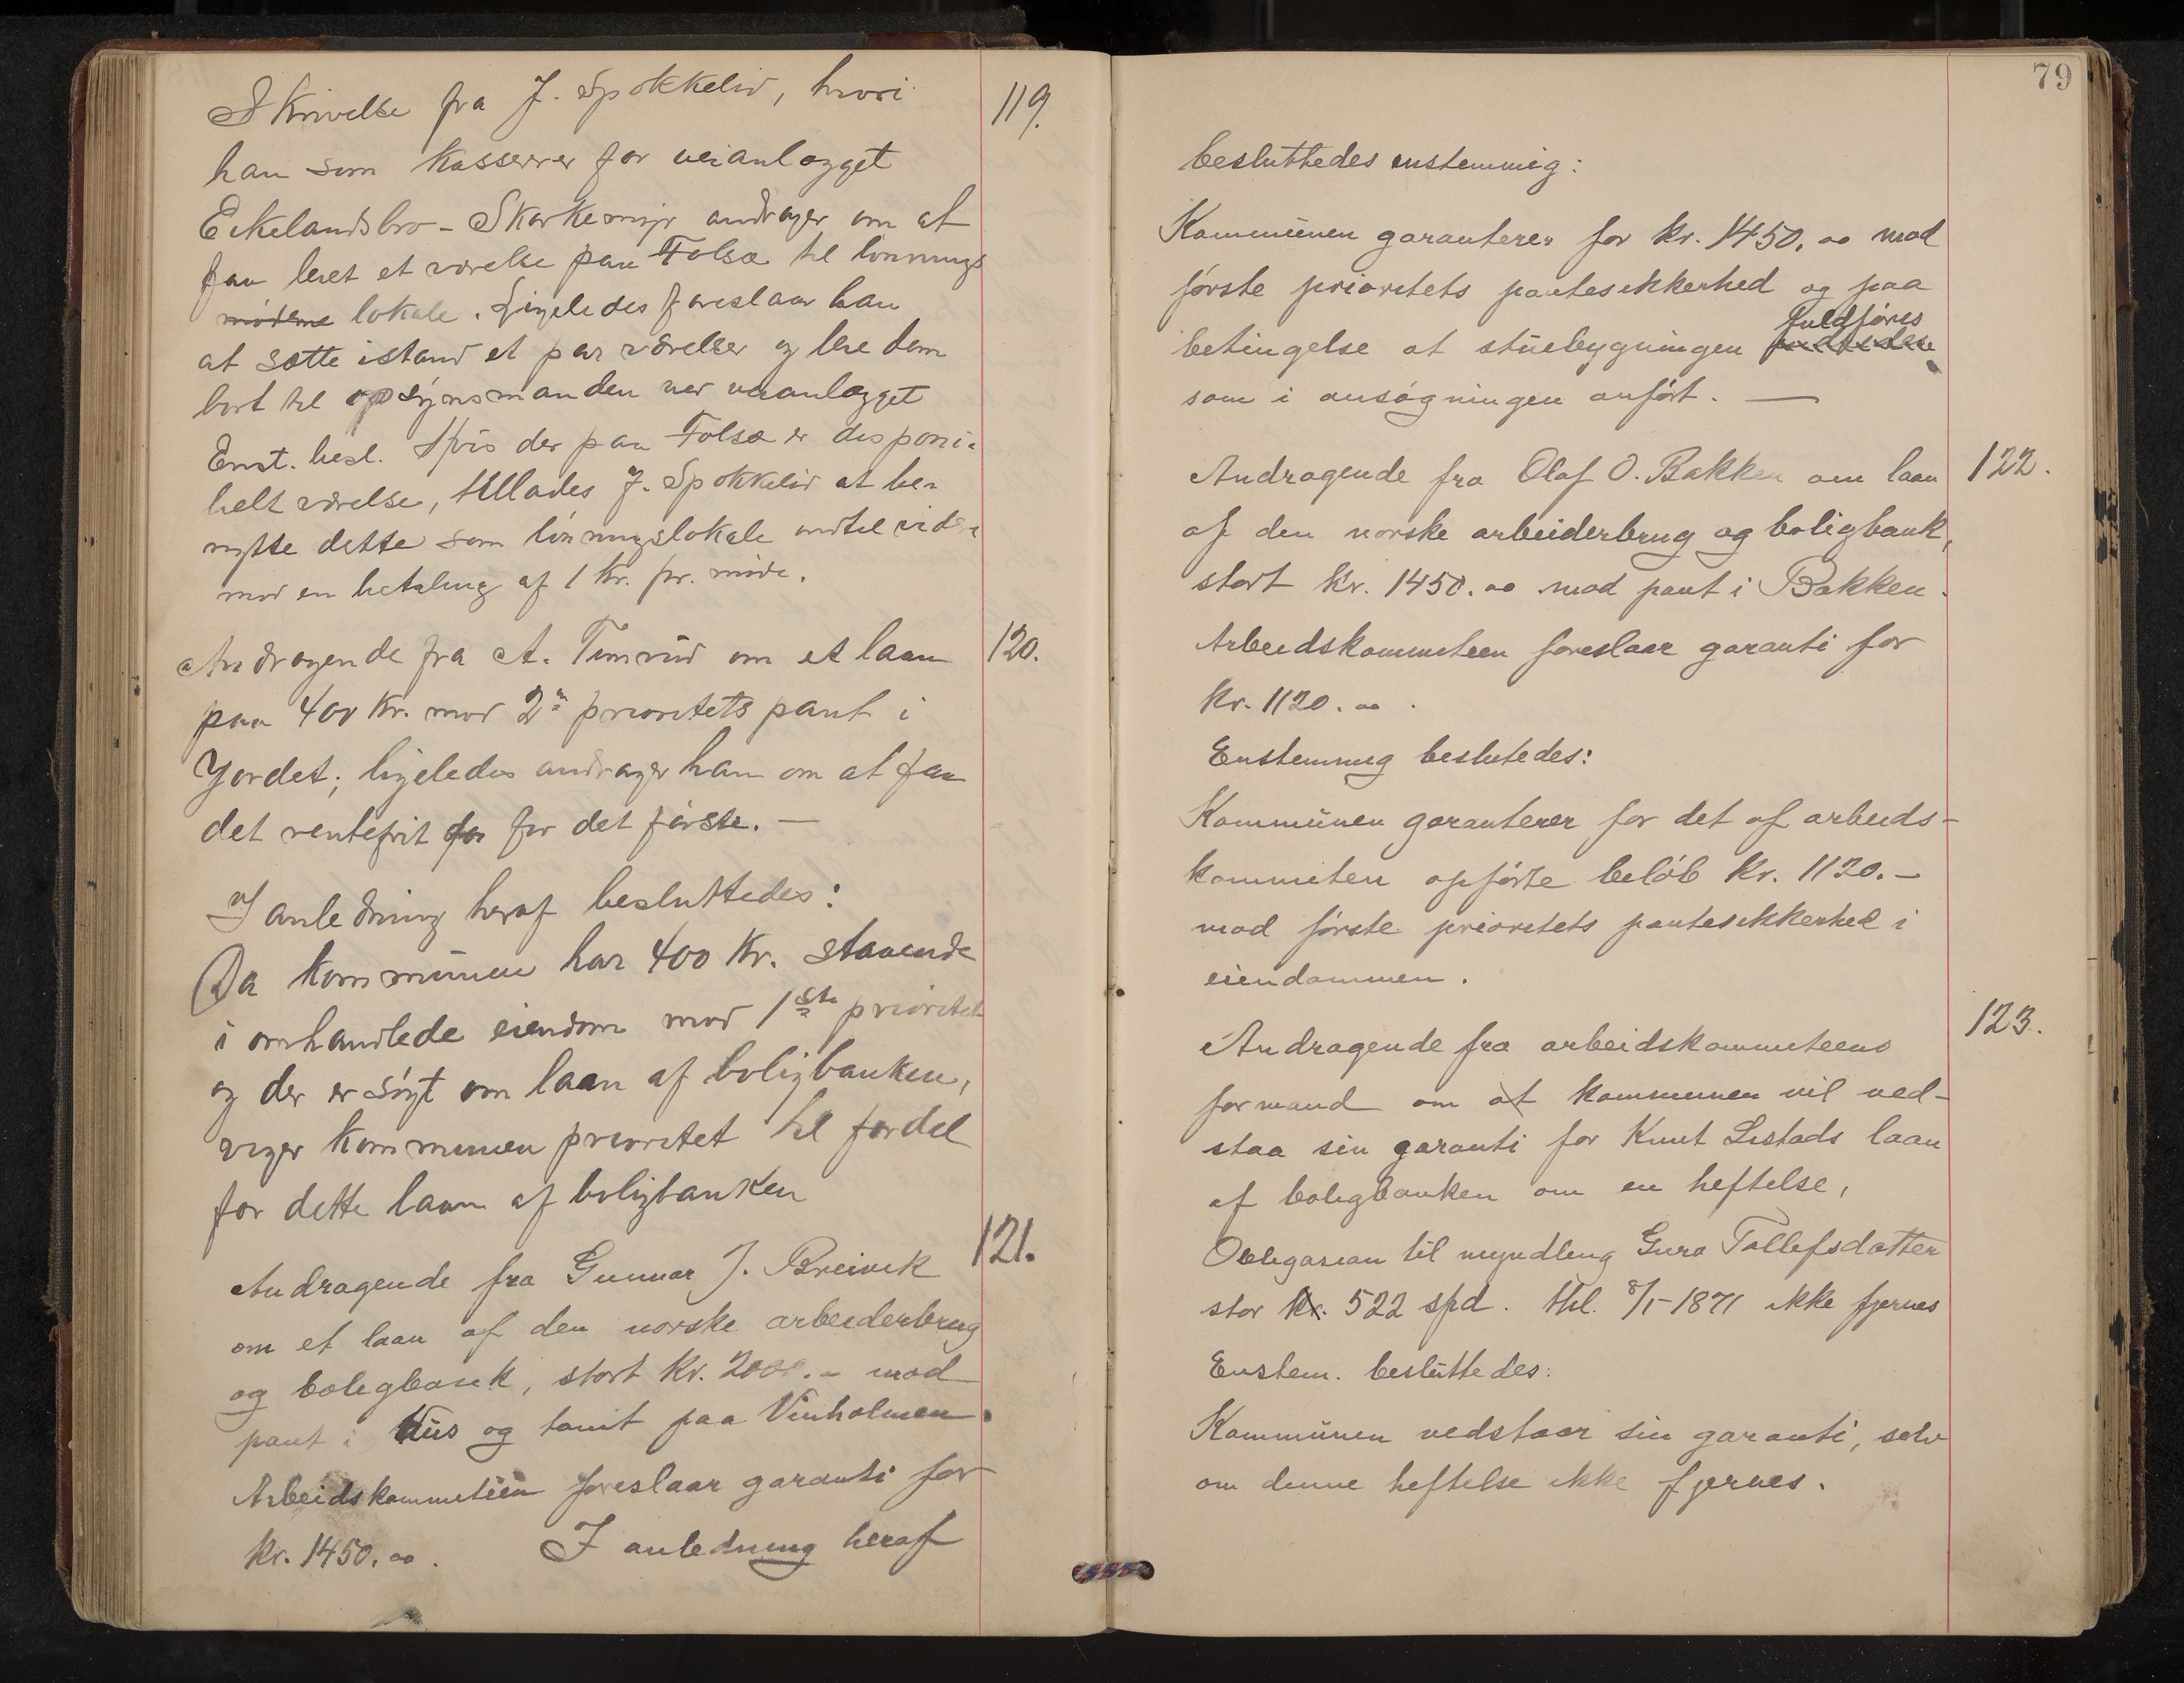 Skrivelse fra J. Spokkeliv, hvori
119.
han som Kasserer for veianlægget
Eikelandsbro - Skarkemyr andrager om at
faa leiet et værelse paa Folsæ til lønnings
møderne lokale. Ligeledes foreslaar han
at sætte istand et par værelser og leie dem
bort til opsynsmanden ved veianlægget
Enst. besl. Hvis der paa Folsæ er disponi-
belt værelse, tillades J. Spokkeliv at be-
nytte dette som lønningslokale indtil videre
mod en betaling af 1 Kr. pr. møde.
Andragende fra A. Timrud om et laan
120.
paa 400 Kr. mod 2n prioritets pant i
Jordet; ligeledes andrager han om at faa
det rentefrit for for det første. —
I anledning heraf besluttedes:
Da kommunen har 400 Kr. staaende
i omhandlede eiendom mod 1ste prioritet
og der er søgt om laan af boligbanken,
viger kommunen prioritet til fordel
for dette laan af boligbanken
121.
Andragende fra Gunnar J. Breivik
om et laan af den norske arbeiderbrug
og boligbank, stort kr. 2000.- mod
pant i Hus og tomt paa Vinholmen.
Arbeidskommiteen foreslaar garanti for
kr. 1450.00. I anledning heraf
79
besluttedes enstemmig:
Kommunen garanterer for kr. 1450.00 mod
første prioritets pantesikkerhed og paa
fuldføres
betingelse at stuebygningen
som i ansøgningen anført. —
Andragende fra Olaf O. Bakken om laan
122.
af den norske arbeiderbrug og boligbank,
stort kr. 1450.00 mod pant i Bakken.
Arbeidskommiteen foreslaar garanti for
kr. 1120.00.
Enstemmig beslutedes:
Kommunen garanterer for det af arbeids-
kommiteen opførte beløb kr. 1120.-
mod første prioritets pantesikkerhed i
eiendommen.
123.
Andragende fra arbeidskommiteens
formand om at kommunen vil ved-
staa sin garanti for Knut Listads laan
af boligbanken om en heftelse,
Obligasion til myndling Guro Tollefsdatter
stor kr. 522 spd. thl. 8/1-1871 ikke fjernes
Enstem. besluttedes:
Kommunen vedstaar sin garanti, selv
om denne heftelse ikke fjernes.